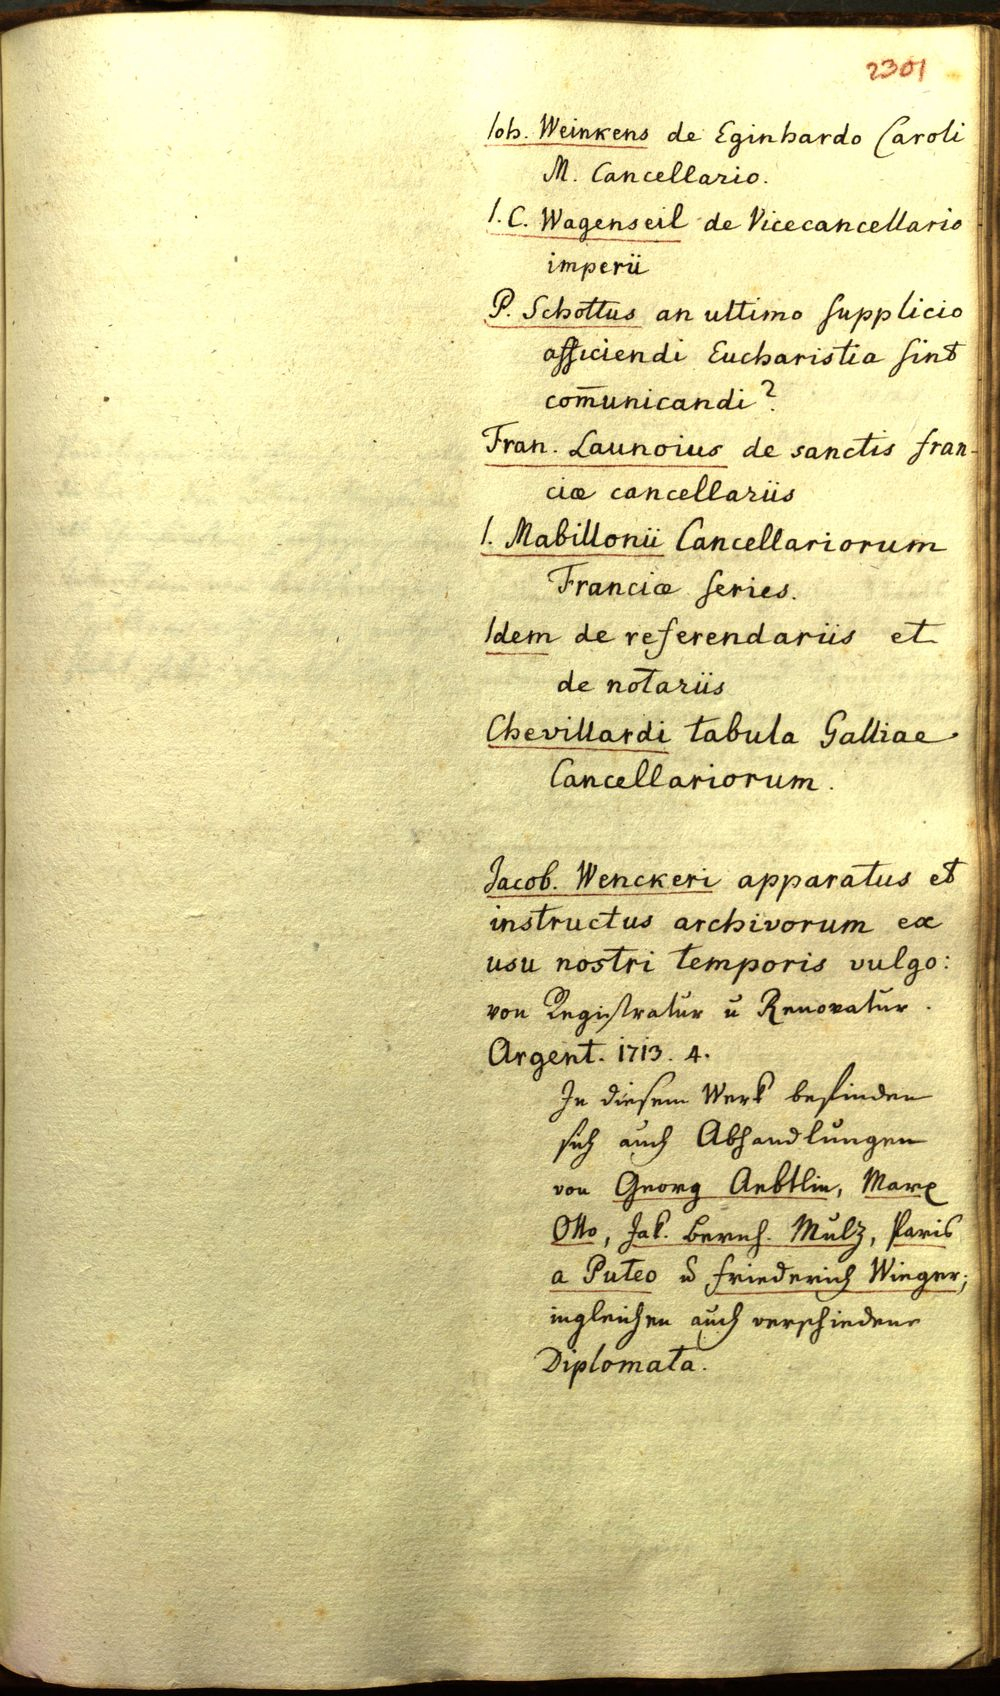 2301
Ioh. Weinkens de Eginhardo Caroli
M. Cancellario.
I. C. Wagenseil de Vicecancellario
imperii
P. Schottus an ultimo supplicio
afficiendi Eucharistia sint
com̄unicandi?
Fran. Launoius de sanctis fran-
ciæ cancellariis
I. Mabillonii Cancellariorum
Franciæ series.
Idem de referendariis et
de notariis
Chevillardi tabula Galliae
Cancellariorum.
Jacob. Wenckeri apparatus et
instructus archivorum ex
usu nostri temporis vulgo:
von Registratur u Renovatur.
Argent. 1713. 4.
In diesem Werk befinden
sich auch Abhandlungen
von Georg Aebtlin, Marx
Otto, Jak. Bernh. Mulz, Paris
a Puteo u Friederich Winger;
ingleichen auch verschiedene
Diplomata.